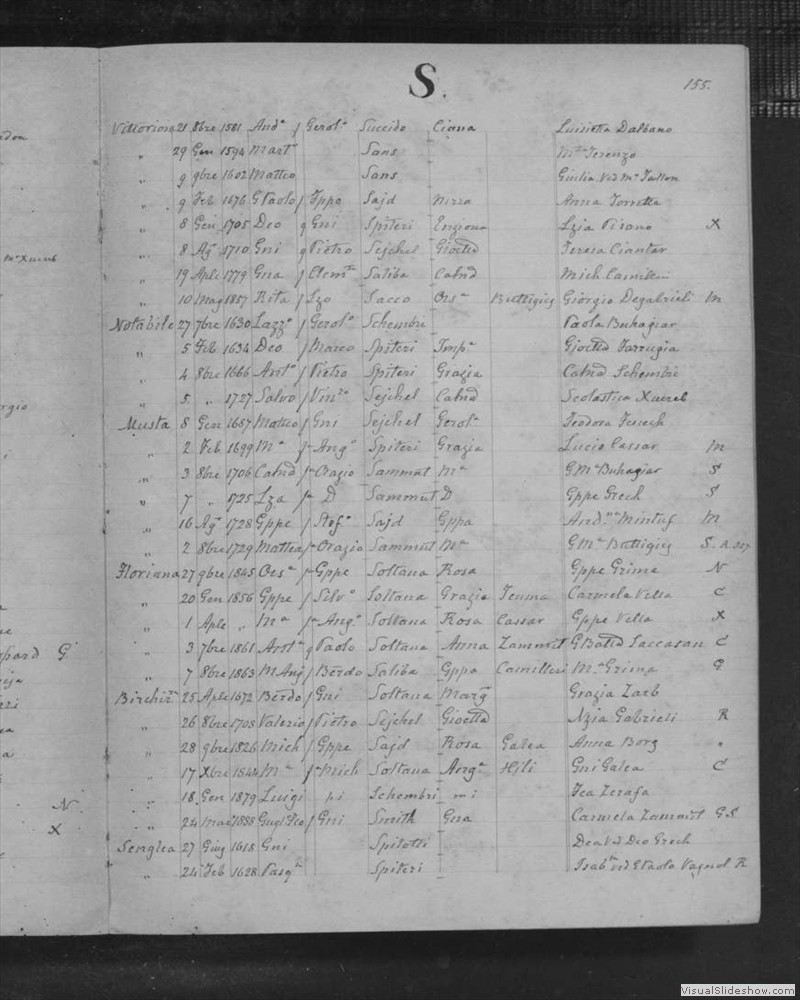 S.
155.
Vittoriosa 21 8bre 1581 Andª f Gerolº Succido Ciana Luisietta Dalbano
„ 29 Gen 1594 Martº Sans Mª Terenzo
„ 9 9bre 1602 Matteo Sans Giulia Vid Mº
„ 9 Feb 1676 G Paolo f Ippo Sajd Nizza Anna Torretta
„ 8 Gen 1705 Deo q Gni Spiteri Enziona Lzia Pisano X
„ 8 Agº 1710 Gni q Pietro Sejchel Gioetta Teresa Ciantar
„ 19 Aple 1779 Gna f Clemte Saliba Catnd Mich Camilleri
„ 10 Mag 1857 Rita f Lzo Sacco Orsª Buttigieg Giorgio Degabrieli M
Notabile 27 7bre 1630 Lazzº f Gerolº Schembri Paola Buhagiar
„ 5 Feb 1634 Deo f Marco Spiteri Impª Gioetta Farrugia
„ 4 8bre 1666 Antº f Pietro Spiteri Grazia Catnd Schembri
„ 5 „ 1727 Salvo f Vinzº Sejchel Catnd Scolastica Xuereb
Musta 8 Gen 1687 Matteo f Gni Sejchel Gerolª Teodora Fenech
„ 2 Feb 1699 Mª f Angº Spiteri Grazia Lucio Cassar M
„ 3 8bre 1706 Catnd f Orazio Sammut Mª G Mª Buhagiar S
„ 7 „ 1725 Lza f D Sammut D Gppe Grech S
„ 16 Agº 1728 Gppe f Stefº Sajd Gppa Andna Mintuf M
„ 2 8bre 1729 Mattea f Orazio Sammut Mª G Mª Buttigieg S. R.
Floriana 27 9bre 1845 Orsª f Gppe Soltana Rosa Gppe Grima N
„ 20 Gen 1856 Gppe f Silvº Soltana Grazia Teuma Carmela Vella C
„ 1 Aple „ Mª f Angº Soltana Rosa Cassar Gppe Vella X
„ 3 7bre 1861 Antº q Paolo Soltana Anna Zammit G Batta Saccasan C
„ 7 8bre 1863 M Ang f Berdo Saliba Gppa Camilleri Mª Grima G
Birchirª 25 Aple 1672 Berdo f Gni Soltana Marg Grazia Zaeb
„ 26 8bre 1708 Valerio f Pietro Sejchel Gioetta Nzia Gabrieli R
„ 28 9bre 1826 Mich f Gppe Sajd Rosa Galea Anna Borg „
„ 17 Xbre 1844 Mª f Mich Soltana Angª Hili Gni Galea C
„ 18 Gen 1879 Luigi pi Schembri mi Tea Zerafa
„ 24 Mag 1888 f Gni Smith Gna Carmela Zammit G S
Senglea 27 Giug 1618 Gni Spilotti Dea Vd Deo Grech
„ 24 Feb 1628 Pasqº Spiteri Isabla vd G Paolo Vagnol R
N
X
VisualSlideshow.com